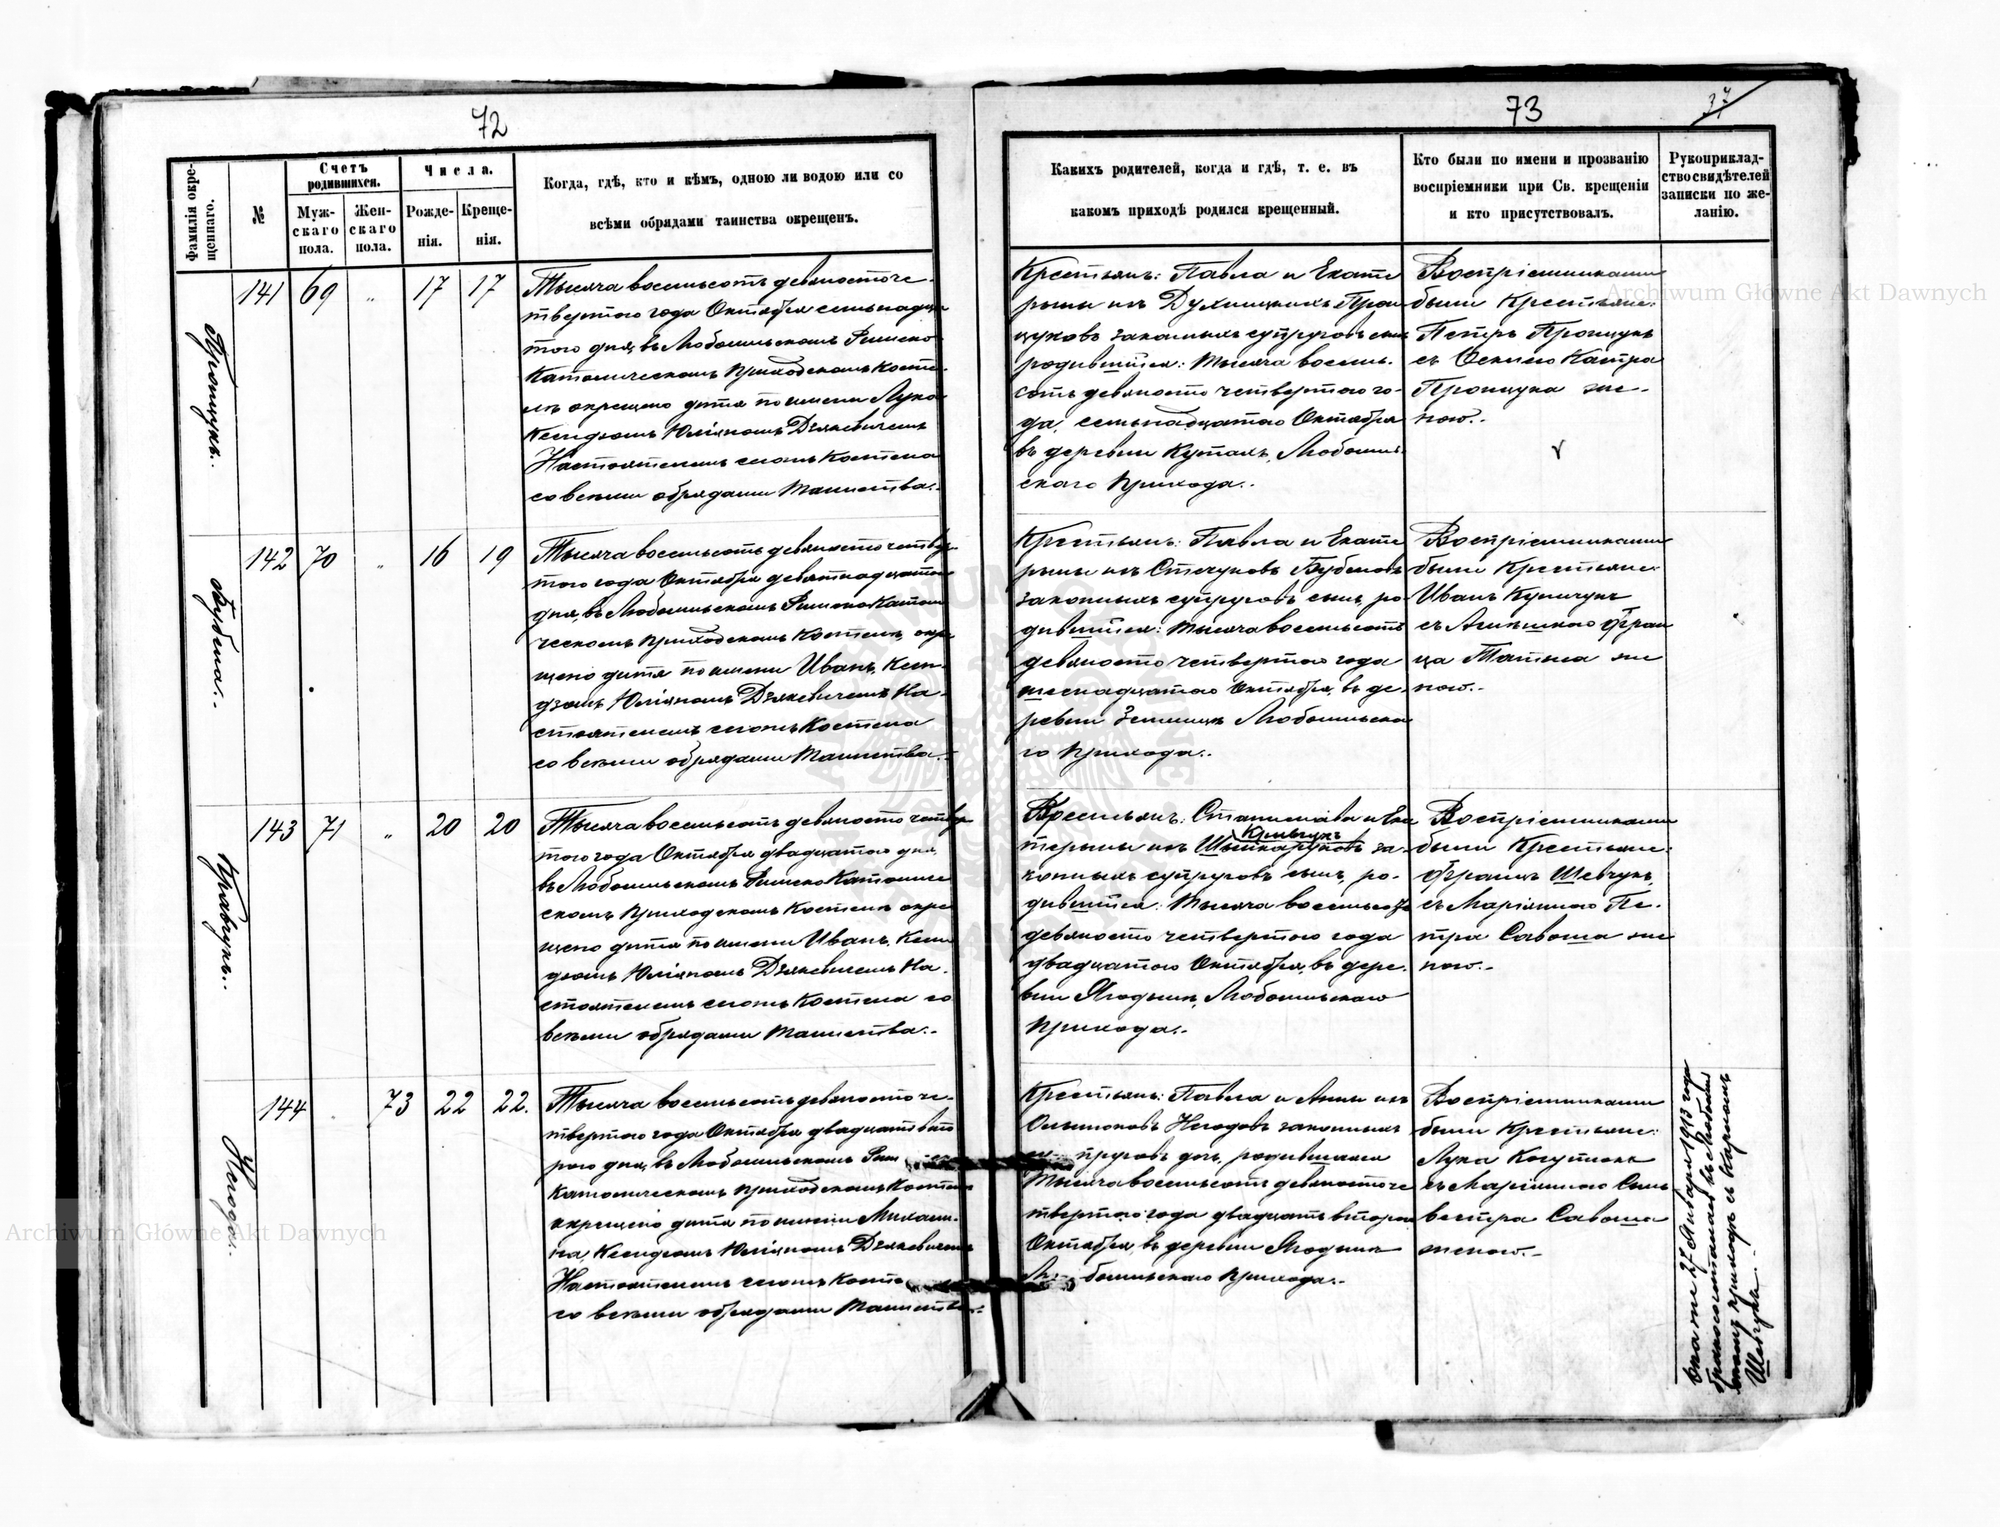 72
Фамилія окре-
щеннаго.
№
Счетъ
родившихся.
Муж-
скаго
пола.
Жен-
скаго
пола.
Числа.
Рожде-
нія.
Креще-
нія.
Когда, гдѣ, кто и кѣмъ, одною ли водою или со
всѣми обрядами таинства окрещенъ.
Пронцукъ.
141 69 „ 17 17
Тысяча восемьсотъ девяносто че-
твертого года Октября семьнадца
того дня, въ Любомльскомъ Римско
Католическомъ Приходскомъ Косте-
лѣ окрещено дитя по имени Лука
Ксендзомъ Юліяномъ
Настоятелемъ сегожъ Костела
со всѣми обрядами Таинства.
Бубела.
142 70 „ 16 19
Тысяча восемьсотъ девяносто четвер
того года Октября девятнадцатого
дня, въ Любомльскомъ Римско Католи
ческомъ Приходскомъ Костелѣ окре
щено дитя по имени Иванъ, Ксен-
дзомъ Юліяномъ На-
стоятелемъ сегожъ Костела
со всѣми обрядами Таинства.
143 71 „ 20 20
Тысяча восемьсотъ девяносто четвер
того года Октября двадцатого дня,
въ Любомльскомъ Римско Католиче
скомъ Приходскомъ Костелѣ окре
щено дитя по имени Иванъ, Ксен
дзомъ Юліяномъ На-
стоятелемъ сегожъ Костела со
всѣми обрядами Таинства.
Негода.
144 73 22 22.
Тысяча восемьсотъ девяносто че-
твертого года Октября двадцать вто
рого дня, въ Любомльскомъ
Католическомъ Приходскомъ Костелѣ
окрещено дитя по имени Михали-
на Ксендзомъ Юліяномъ
Настоятелемъ сегожъ
со всѣми обрядами Таинства.
73
37
Какихъ родителей, когда и гдѣ, т. е. въ
какомъ приходѣ родился крещенный.
Кто были по имени и прозванію
воспріемники при Св. крещеніи
и кто присутствовалъ.
Рукоприклад-
ство свидѣтелей
записки по же-
ланію.
Крестьянъ: Павла и Екате
рины изъ Прон
цуковъ законныхъ супруговъ сынъ
родившійся: тысяча восемь-
сотъ девяносто четвертого го-
да, семьнадцатого Октября
въ деревни Любомль-
скаго Прихода.
Воспріемниками
были Крестьяне:
Петръ Пронцукъ
съ Петра
Пронцука же-
ною.
Крестьянъ: Павла и Екате
рины изъ Бубеловъ
законныхъ супруговъ сынъ, ро-
дившійся: тысяча восемьсотъ
девяносто четвертого года
шеснадцатого Октября, въ де-
ревни Любомльска
го Прихода.
Воспріемниками
были Крестьяне:
Иванъ
съ Фран
ца же
ною.
Крестьянъ: Станислава и Ека
терины изъ за-
конныхъ супруговъ сынъ, ро-
дившійся: тысяча восемьсотъ
девяносто четвертого года
двадцатого Октября, въ дере-
вни Ягодынѣ, Любомльскаго
Прихода.
Воспріемниками
были Крестьяне:
Францъ Шевчукъ,
съ Маріянною Пе-
тра Саваша же
ною.
Крестьянъ: Павла и Анны изъ
Негодовъ законныхъ
дочь, родившаяся
тысяча восемьсотъ девяносто че
твертого года двадцать второго
Октября, въ деревни Ягодынѣ
Прихода.
Воспріемниками
были Крестьяне:
Лука
съ Маріянною Силь
вестра Саваша
женою.
27 Января 1913 года
Шевчука.
Archiwum Główne Akt Dawnych
Archiwum Główne Akt Dawnych